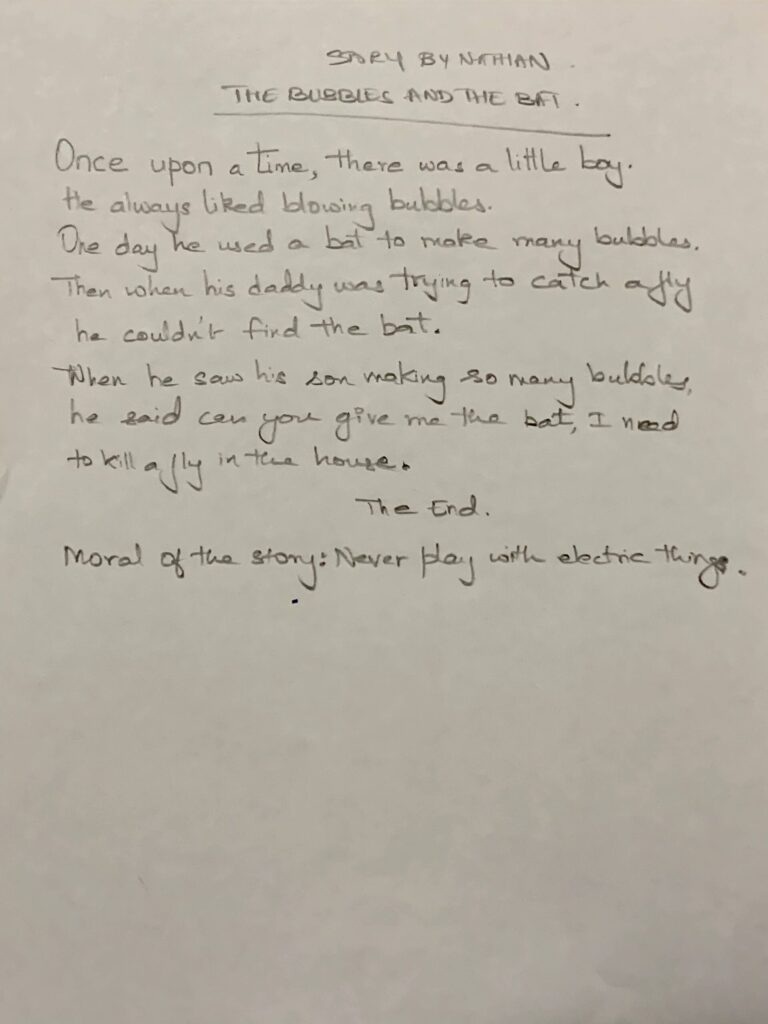 STORY BY NATHAN.
THE BUBBLES AND THE BAT.
Once upon a time, there was a little boy.
He always liked blowing bubbles.
One day he used a bat to make many bubbles.
Then when his daddy was trying to catch a fly
he couldn't find the bat.
When he saw his son making so many bubbles,
he said can you give me the bat, I need
to kill a fly in the house.
The End.
Moral of the story: Never play with electric things.